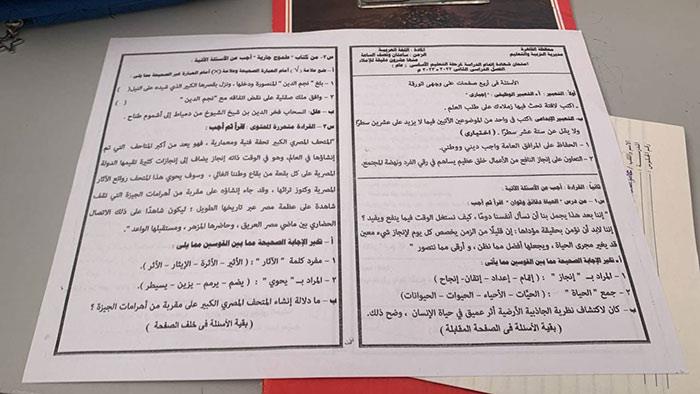 محافظة القاهرة
مديرية التربية والتعليم
مادة : اللغة العربية
الزمن : ساعتان ونصف الساعة
منها عشرون دقيقة للإملاء
امتحان شهادة إتمام الدراسة لمرحلة التعليم الأساسى : عام :
الفصل الدراسى الثانى ٢٠٢٢ - ٢٠٢٣ م
الأسئلة فى أربع صفحات على وجهى الورقة
أولاً: التعبير : أ- التعبير الوظيفى : إجبارى -
- اكتب لافتة تحث فيها زملاءك على طلب العلم .
ب- التعبير الإبداعى اكتب فى واحد من الموضوعين الآتيين فيما لا يزيد على عشرين سطرًا
ولا يقل عن ستة عشر سطرًا. ( اختيارى )
١- الحفاظ على المرافق العامة واجب دينى ووطنى.
٢- التعاون على إنجاز النافع من الأعمال خلق عظيم يساهم في رقي الفرد ونهضة المجتمع.
ثانيًا : القراءة : أجب عن الأسئلة الآتية :
س١ - من درس - الحياة دقائق وثوان - اقرأ ثم أجب :
"إننا بعد هذا يجمل بنا أن نسأل أنفسنا دومًا، كيف نستغل الوقت فيما ينفع ويفيد ؟
إننا لابد أن نؤمن بحقيقة مؤداها: إن قليلًا من الزمن يخصص كل يوم لإنجاز شيء معين
قد يغير مجرى الحياة، ويجعلها أفضل مما نظن ، و أرقى مما نتصور "
أ- تخير الإجابة الصحيحة مما بين القوسين مما يأتى :
١ - المراد بـ " إنجاز " : ( إلمام - إعداد - إتقان - إنجاح )
٢ - جمع " الحياة " : ( الحيّات - الأحياء - الحيوات - الحيوانات )
ب- كان لاكتشاف نظرية الجاذبية الأرضية أثر عميق في حياة الإنسان ، وضح ذلك.
( بقية الأسئلة فى الصفحة المقابلة )
س٢- من كتاب - طموح جارية - أجب عن الأسئلة الآتية :
أ- ضع علامة ( √ ) أمام العبارة الصحيحة وعلامة (×) أمام العبارة غير الصحيحة مما يلى :
١ - بلغ " نجم الدين " المنصورة ودخلها ، ونزل بقصرها الكبير الذي شيده على النيل( )
٢ - وافق ملك صقلية على نقض اتفاقه مع "نجم الدين" ( )
ب - علل: انسحاب فخر الدين بن شيخ الشيوخ من دمياط إلى أشموم طناح .
س٣- القراءة متحررة المحتوى : اقرأ ثم أجب :
"المتحف المصري الكبير تحفة فنية ومعمارية ، فهو يعد من أكبر المتاحف التي تم
إنشاؤها في العالم، وهو في الوقت ذاته إنجاز يضاف إلى إنجازات كثيرة تقيمها الدولة
المصرية على كل بقعة من بقاع وطننا الغالي ، وسوف يحوي هذا المتحف روائع الآثار
المصرية وكنوز تراثها ، وقد جاء إنشاؤه على مقربة من أهرامات الجيزة التي تقف
شاهدة على عظمة مصر عبر تاريخها الطويل ؛ ليكون شاهدًا على ذلك الاتصال
الحضاري بين ماضي مصر العريق ، وحاضرها المزهر ، ومستقبلها الواعد ".
أ - تخير الإجابة الصحيحة مما بين القوسين مما يلى :
١ - مفرد كلمة " الآثار " : ( الأثير - الأثرة - الإيثار - الأثر ).
٢ - المراد بـ " يحوي " : ( يضم - يرمم - يزين - يسيطر ).
ب- ما دلالة إنشاء المتحف المصري الكبير على مقربة من أهرامات الجيزة ؟
( بقية الأسئلة فى خلف الصفحة )